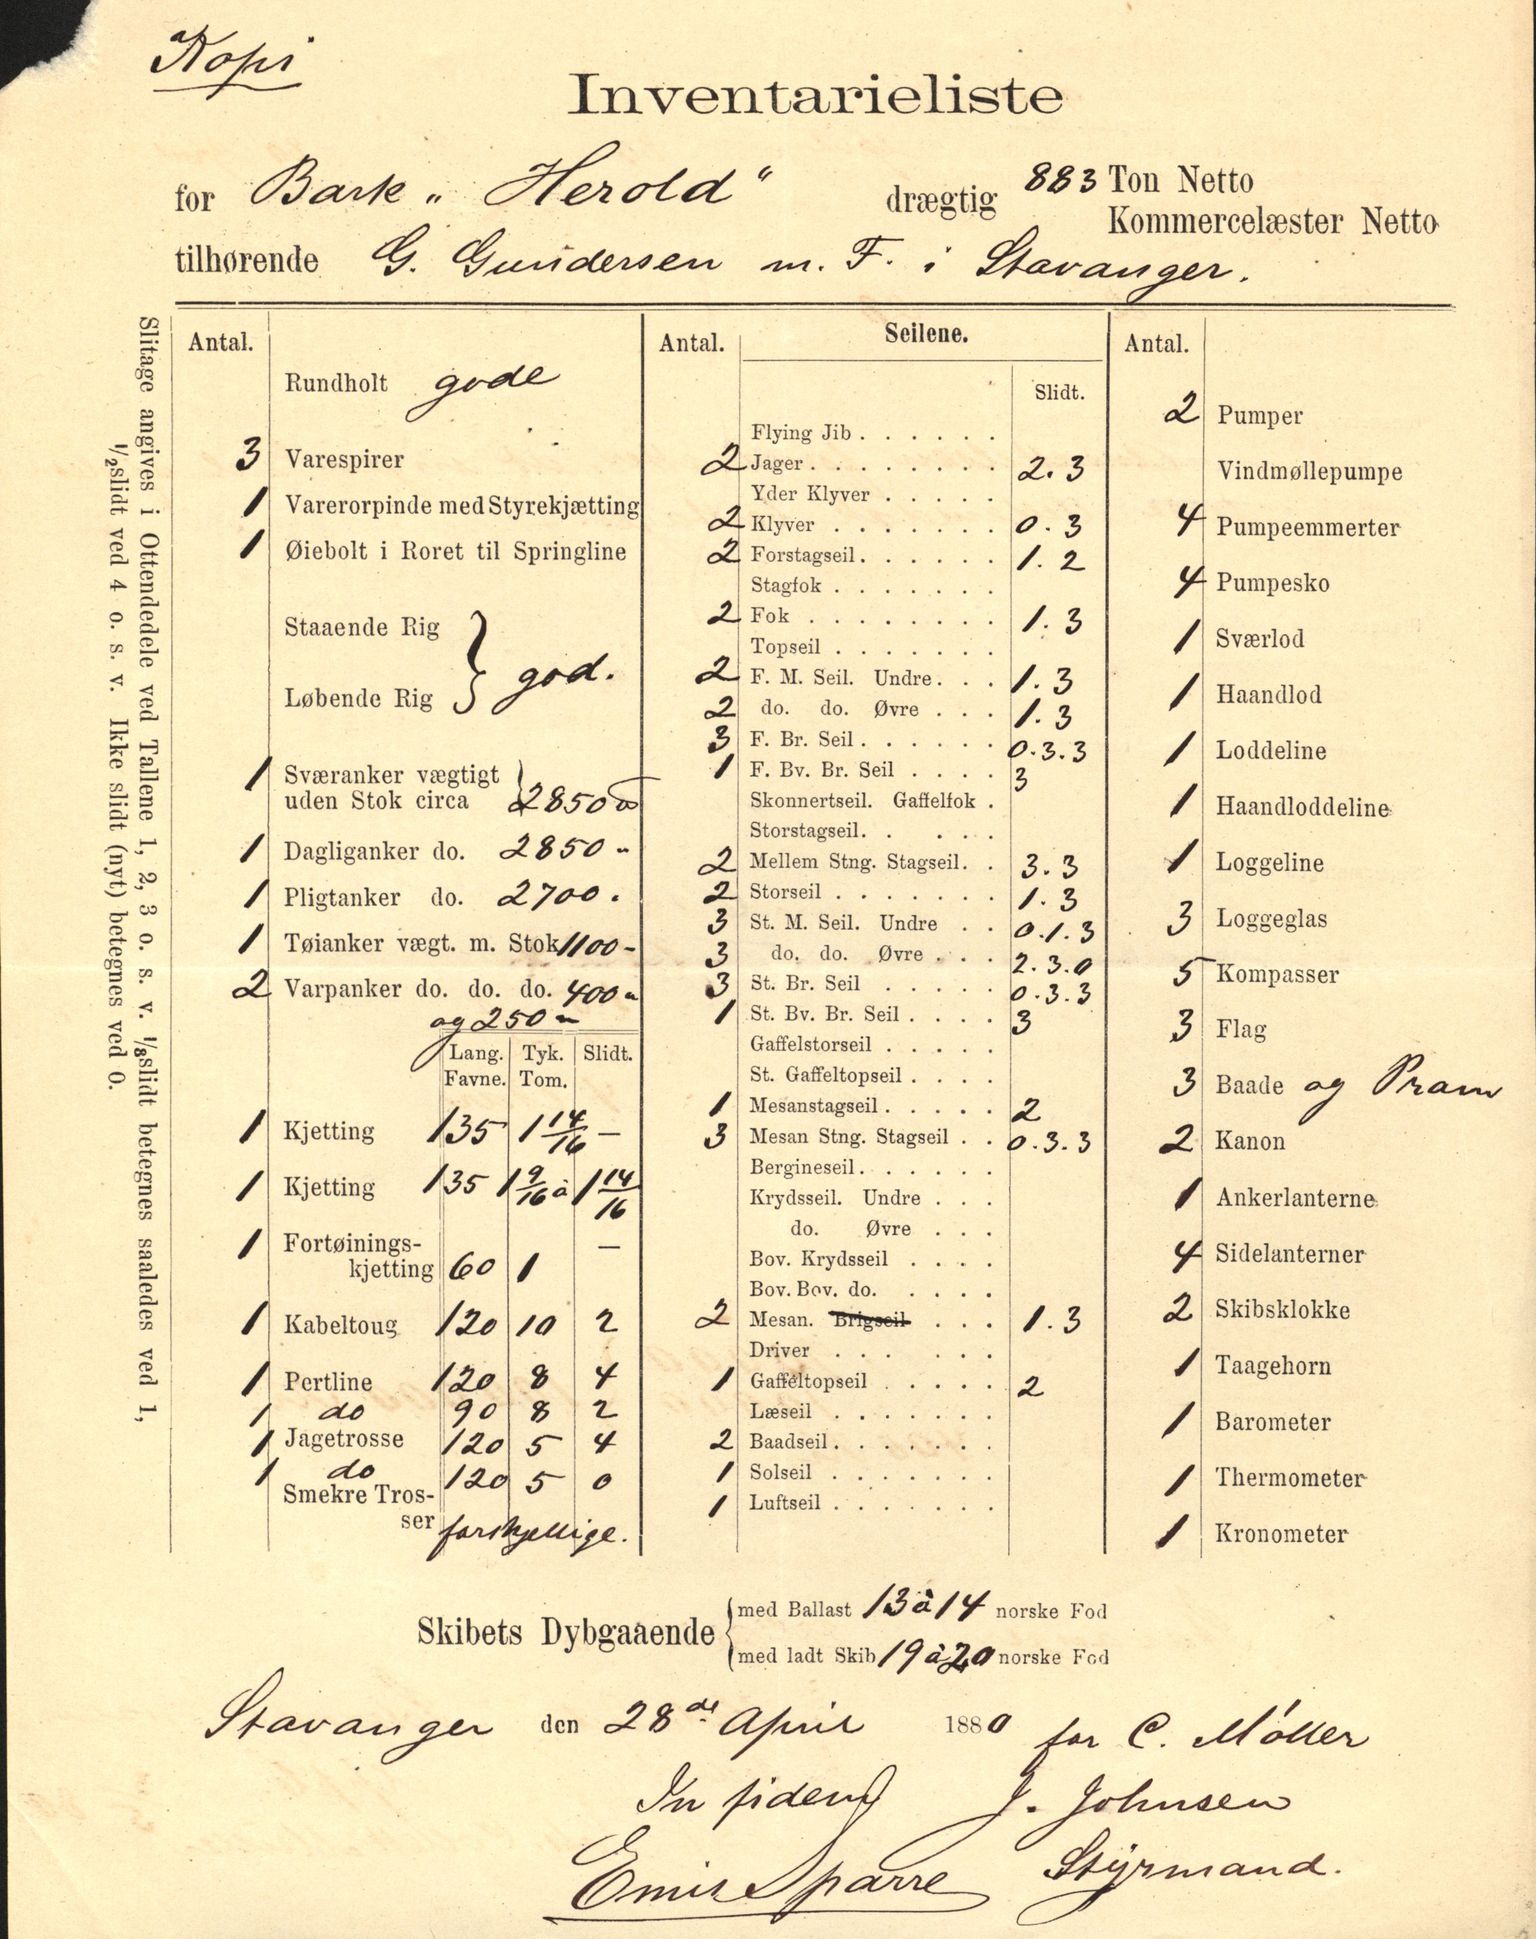 Kopi
Inventarieliste
for Bark „ Herold “ drægtig 883 Ton Netto
Kommercelæster Netto
tilhørende G. Gundersen m. F. i Stavanger.
Slitage angives i Ottendedele ved Tallene 1, 2, 3 o. s. v. 1/8 slidt betegnes saaledes ved 1,
1/2 slidt ved 4 o. s. v. Ikke slidt (nyt) betegnes ved 0.
Antal.
Rundholt gode
3 Varespirer
1 Varerorpinde med Styrekjætting
1 Øiebolt i Roret til Springline
Staaende Rig
Løbende Rig } god.
1 Sværanker vægtigt
uden Stok circa } 2850
1 Dagliganker do. 2850 "
1 Pligtanker do. 2700 "
1 Tøianker vægt. m. Stok 1100 "
2 Varpanker do. do. do. 400 "
og 250 "
Lang. Tyk. Slidt.
Favne. Tom.
1 Kjetting 135 1 14/16 —
1 Kjetting 135 1 9/16 à 1 14/16
1 Fortøinings- —
kjetting 60 1
1 Kabeltoug 120 10 2
1 Pertline 120 8 4
1 do 90 8 2
1 Jagetrosse 120 5 4
1 do 120 5 0
Smekre Tros-
ser forskjellige.
Antal. Seilene.
Slidt.
Flying Jib . . . . . .
2 Jager . . . . . . . . 2. 3
Yder Klyver . . . . .
2 Klyver . . . . . . . 0. 3
2 Forstagseil . . . . . . 1. 2
Stagfok . . . . . . .
2 Fok . . . . . . . . 1. 3
Topseil . . . . . . .
2 F. M. Seil. Undre . . . 1. 3
2 do. do. Øvre . . . 1. 3
3 F. Br. Seil . . . . . . 0. 3. 3
1 F. Bv. Br. Seil . . . . 3
Skonnertseil. Gaffelfok .
Storstagseil . . . . .
2 Mellem Stng. Stagseil . . 3. 3
2 Storseil . . . . . . . 1. 3
3 St. M. Seil. Undre . . 0. 1. 3
3 do. do. Øvre . . . 2. 3. 0
3 St. Br. Seil . . . . . 0. 3. 3
1 St. Bv. Br. Seil . . . . 3
Gaffelstorseil . . . . .
St. Gaffeltopseil . . . .
1 Mesanstagseil . . . . . 2
3 Mesan Stng. Stagseil . . 0. 3. 3
Bergineseil . . . . . .
Krydsseil. Undre . . .
do. Øvre . . .
Bov. Krydsseil . . . .
Bov. Bov. do. . . . .
2 Mesan. Brigseil . . . 1. 3
Driver . . . . . .
1 Gaffeltopseil . . . . . 2
Læseil . . . . . . .
2 Baadseil . . . . . .
1 Solseil . . . . . . .
1 Luftseil . . . . . . .
Antal.
2 Pumper
Vindmøllepumpe
4 Pumpeemmerter
4 Pumpesko
1 Sværlod
1 Haandlod
1 Loddeline
1 Haandloddeline
1 Loggeline
3 Loggeglas
5 Kompasser
3 Flag
3 Baade og Pram
2 Kanon
1 Ankerlanterne
4 Sidelanterner
2 Skibsklokke
1 Taagehorn
1 Barometer
1 Thermometer
1 Kronometer
Skibets Dybgaaende { med Ballast 13 à 14 norske Fod
med ladt Skib 19 à 20 norske Fod
Stavanger den 28de April 1880 for C. Møller
In fidem J. Johnsen
Emil Sparre Styrmand.